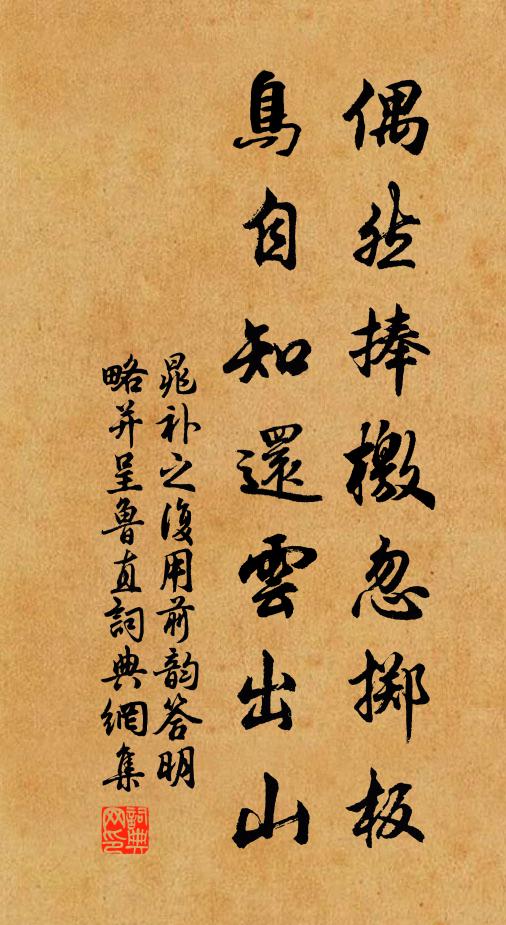 偶然捧檄忽掷板
鳥自知還雲出山
晁补之復用前韵答明
略并呈魯直詞典網集
詞典网印